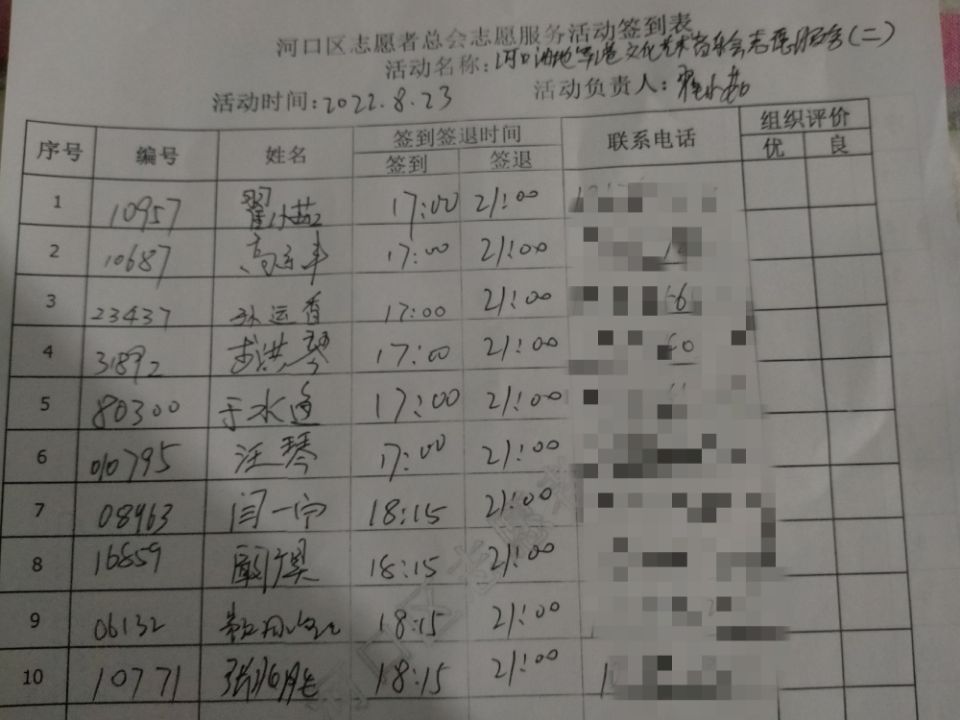 河口区志愿者总会志愿服务活动签到表
活动名称: 河口 文化艺术 音乐会志愿服务(二)
活动时间: 2022.8.23 活动负责人: 翟小茹
序号 编号 姓名 签到签退时间 联系电话 组织评价
签到 签退 优 良
1 10957 翟小茹 17:00 21:00
2 10687 高 17:00 21:00
3 23437 孙运香 17:00 21:00
4 31892 洪琴 17:00 21:00
5 80300 于水莲 17:00 21:00
6 010795 汪琴 17:00 21:00
7 08963 闫一宁 18:15 21:00
8 16859 18:15 21:00
9 06132 18:15 21:00
10 10771 张 18:15 21:00